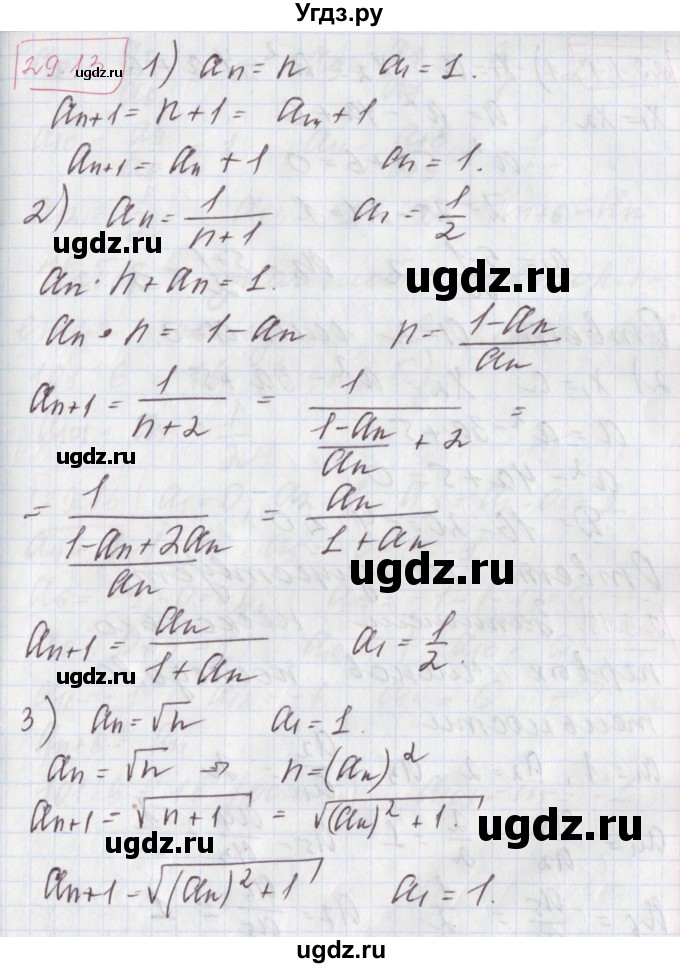 Угдз.ру
29.13 1) an = n a1 = 1.
ugdz.ru
an+1 = n+1 = an+1
an+1 = an + 1 a1 = 1.
2) an = 1/(n+1) a1 = 1/2
ugdz.ru
ugdz.ru
an · n + an = 1.
an · n = 1 - an n = (1-an)/an
an+1 = 1/(n+2) = 1/((1-an)/an + 2) =
ugdz.ru
= 1/((1-an+2an)/an) = an/(1+an)
ugdz.ru
an+1 = an/(1+an) a1 = 1/2.
ugdz.ru
3) an = √n a1 = 1.
an = √n ⇒ n = (an)²
an+1 = √(n+1) = √((an)² + 1).
ugdz.ru
an+1 = √((an)² + 1) a1 = 1.
ugdz.ru
ugdz.ru